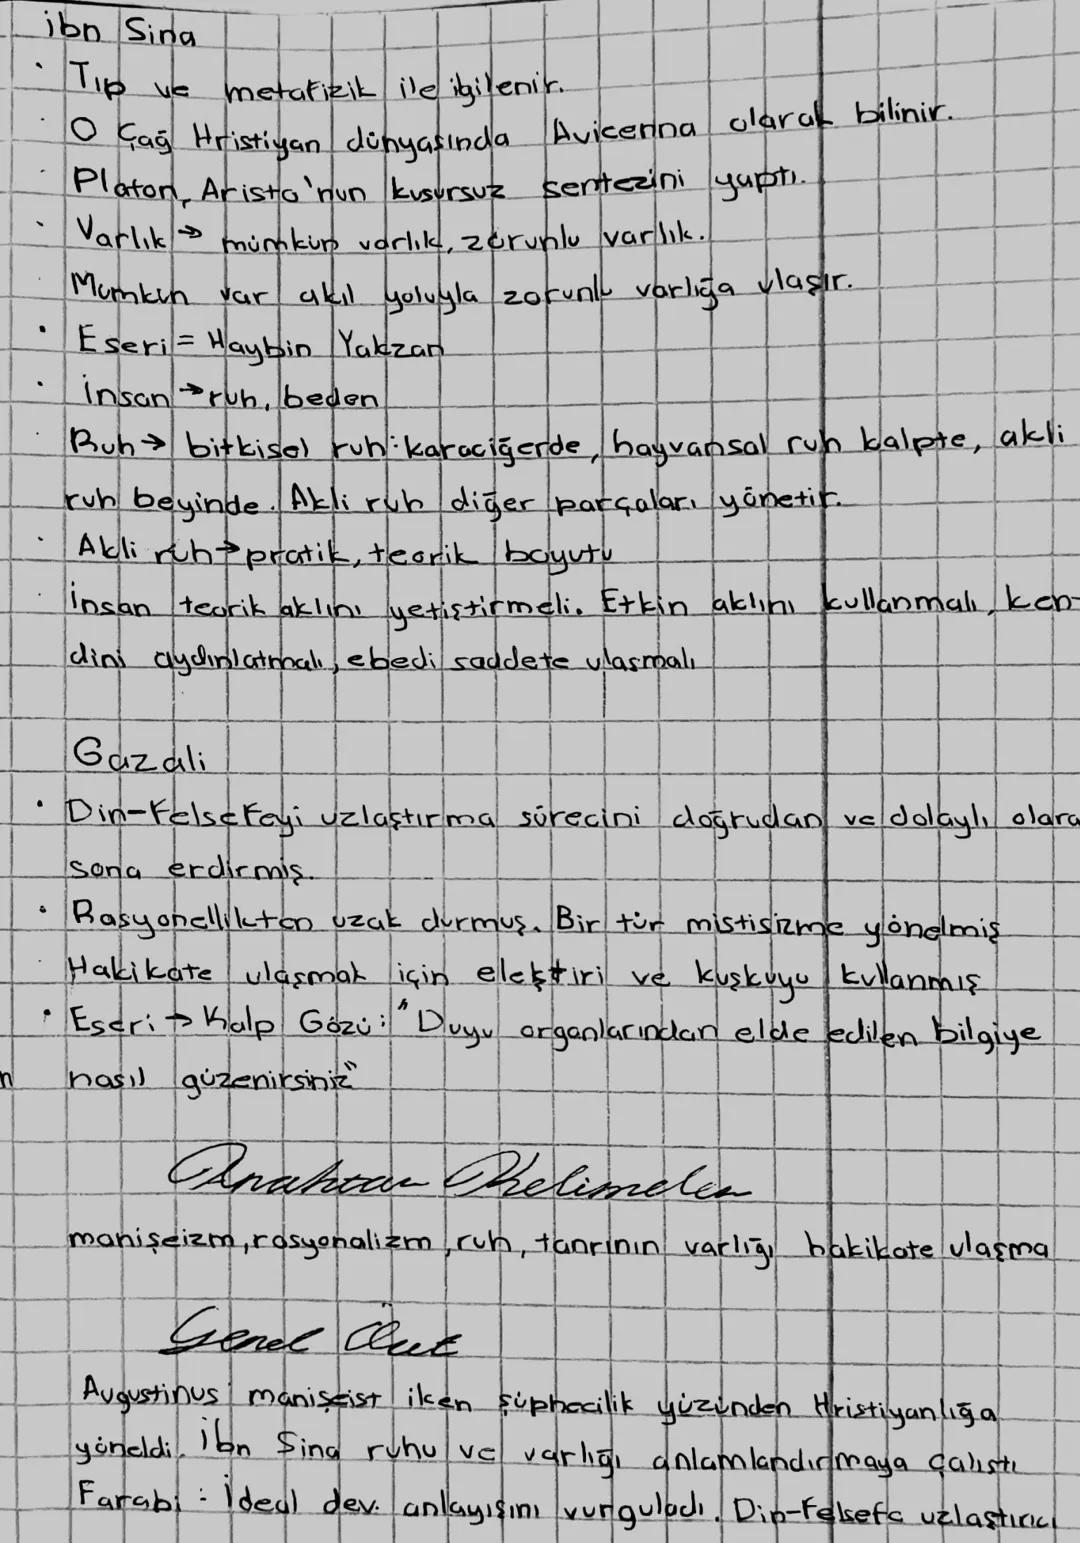 ibn Sina
· Tıp ve metafizik ile ilgilenir.
· O Çağ Hristiyan dünyasında Avicenna olarak bilinir.
· Platon, Aristo'nun kusursuz sentezini yaptı.
· Varlık → mümkün varlık, zorunlu varlık.
· Mümkün var akıl yoluyla zorunlu varlığa ulaşır.
· Eseri = Haybin Yakzan
· İnsan → ruh, beden
· Ruh → bitkisel ruh: karaciğerde, hayvansal ruh kalpte, akli
ruh beyinde. Akli ruh diğer parçaları yönetir.
· Akli ruh → pratik, teorik boyutu
· İnsan teorik aklını yetiştirmeli. Etkin aklını kullanmalı, ken-
dini aydınlatmalı, ebedi saddete ulaşmalı
Gazali
· Din-Felsefeyi uzlaştırma sürecini doğrudan ve dolaylı olara
sona erdirmiş.
· Rasyonellikten uzak durmuş. Bir tür mistisizme yönelmiş
Hakikate ulaşmak için eleştiri ve kuşkuyu kullanmış
· Eseri → Kalp Gözü: "Duyu organlarından elde edilen bilgiye
n nasıl güzenirsiniz"
Anahtar Kelimeler
manişeizm, rasyonalizm, ruh, tanrının varlığı hakikate ulaşma
Genel Özet
Augustinus manişeist iken şüphecilik yüzünden Hristiyanlığa
yöneldi. İbn Sina ruhu ve varlığı anlamlandırmaya çalıştı
Farabi: İdeal dev. anlayışını vurguladı. Din-Felsefe uzlaştırıcı